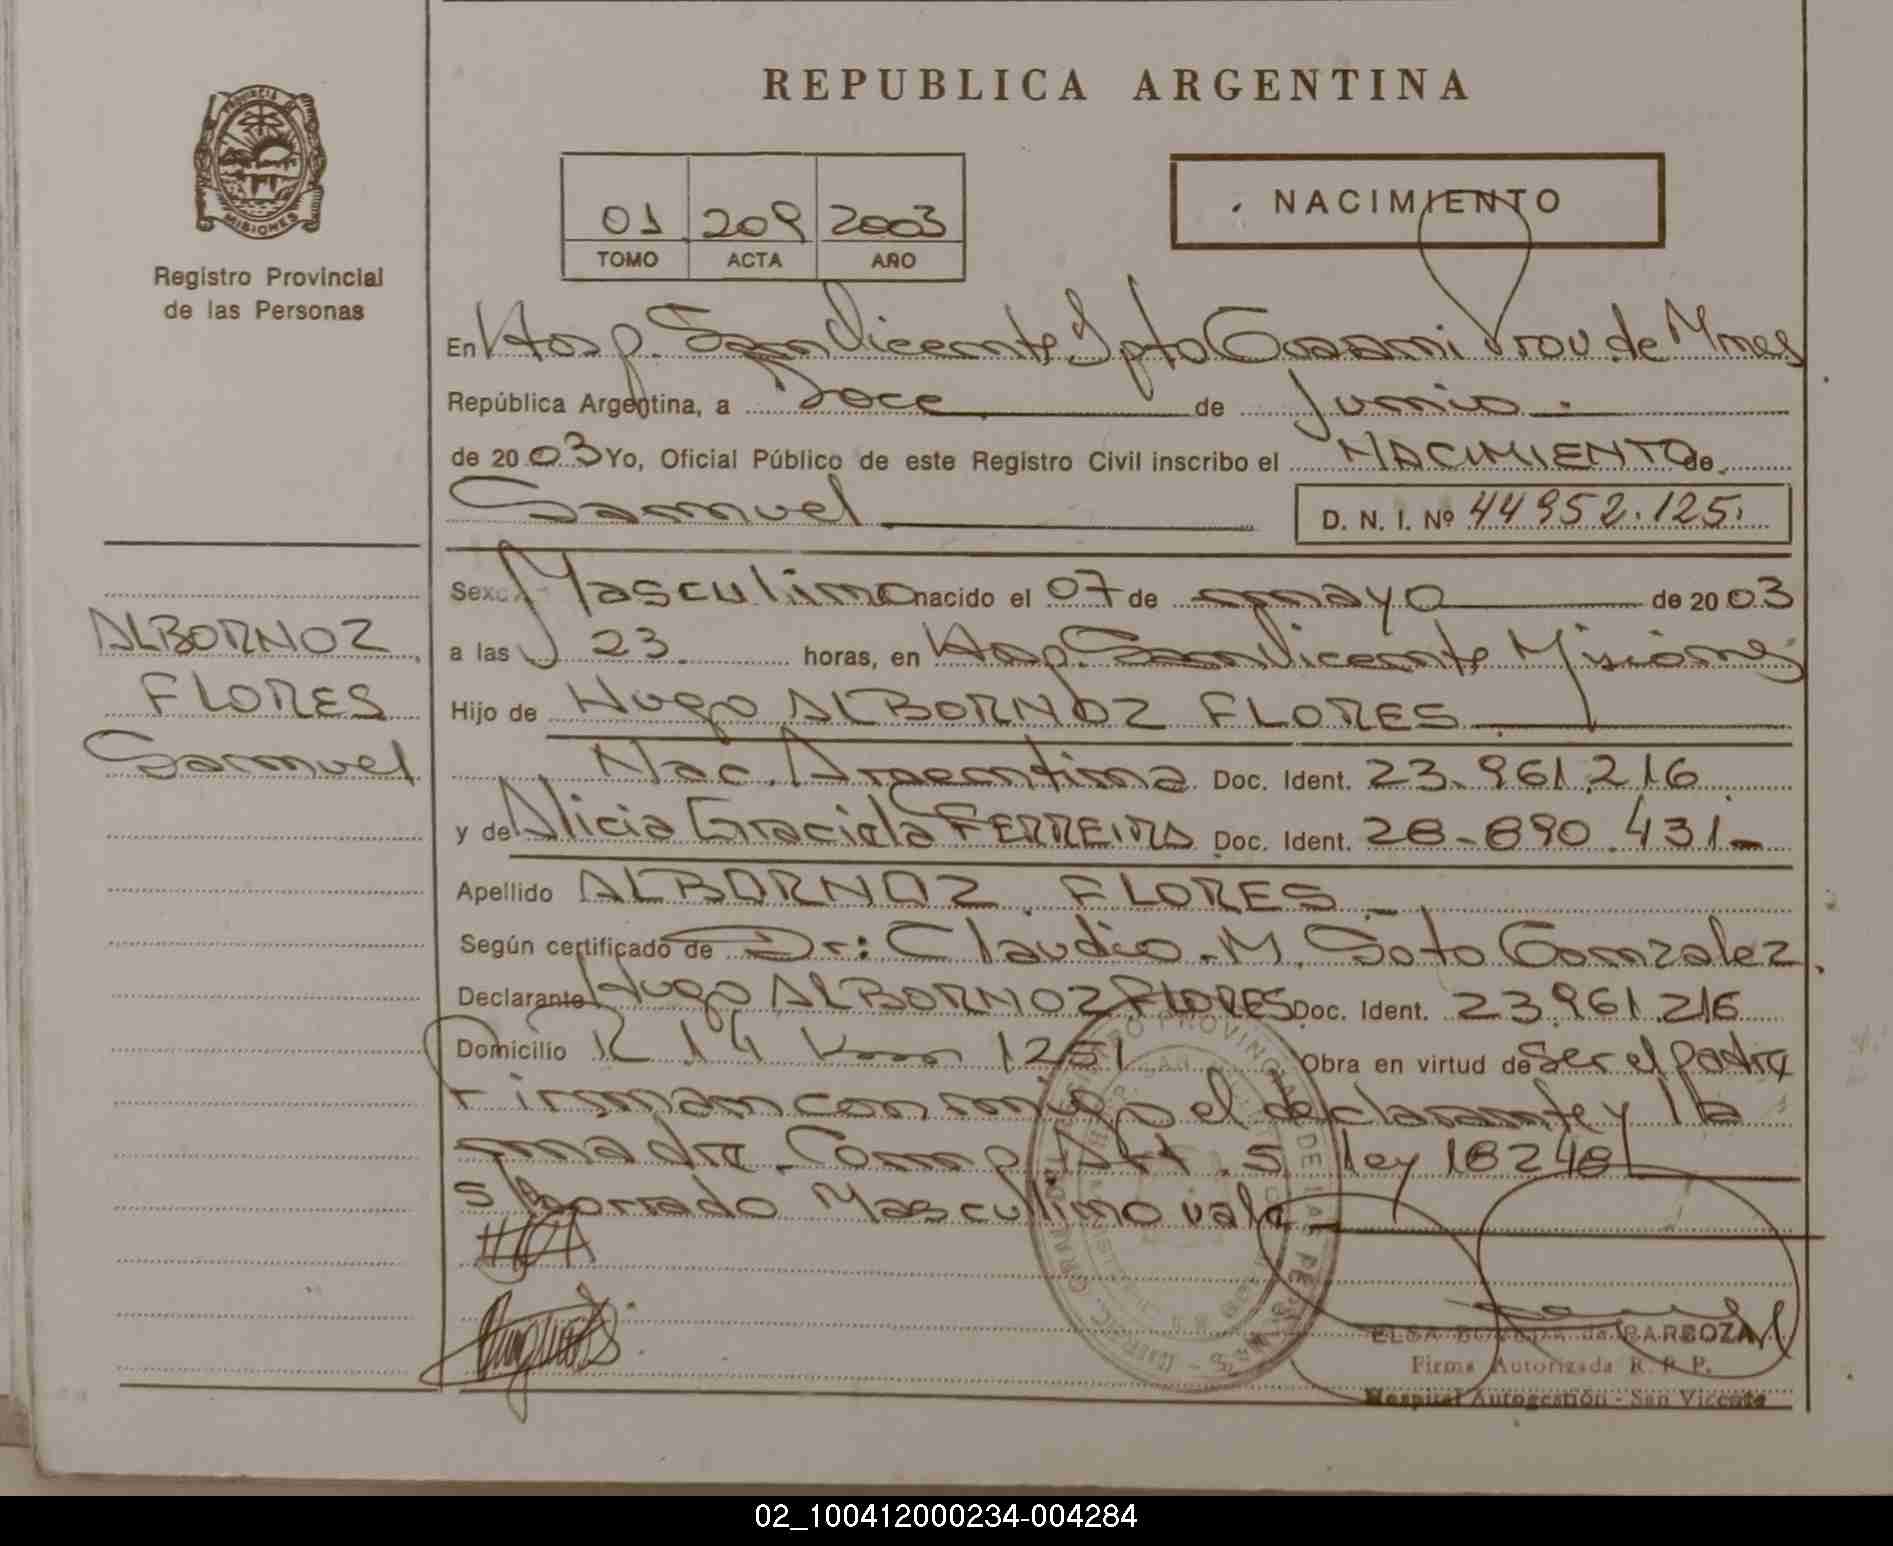 REPUBLICA ARGENTINA
PROVINCIA DE
MISIONES
Registro Provincial
de las Personas
01 209 2003
TOMO ACTA AÑO
NACIMIENTO
En Hosp. San Vicente Dpto Guaraní Prov. de Mnes
República Argentina, a Doce de Junio
de 2003 Yo, Oficial Público de este Registro Civil inscribo el NACIMIENTO de
Samuel D. N. I. Nº 44952.125.
Sexo Masculino nacido el 07 de mayo de 2003
a las 23 horas, en Hosp. San Vicente Misiones
ALBORNOZ
FLORES
Samuel
Hijo de Hugo ALBORNOZ FLORES
Nac. Argentina Doc. Ident. 23.961.216
y de Alicia Graciela FERREIRA Doc. Ident. 28-890.431-
Apellido ALBORNOZ FLORES -
Según certificado de Dr: Claudio.M. Soto Gonzalez.
Declarante Hugo ALBORNOZ FLORES Doc. Ident. 23.961.216
Domicilio R 14 Km 1251 Obra en virtud de Ser el padre
Firman con migo el declarante y la
madre. Comp. Art. 5 ley 18248
s/borrado Masculino vale
HOA
BARBOZA
Firma Autorizada R. P. P.
Hospital Autogestión - San Vicente
02_100412000234-004284